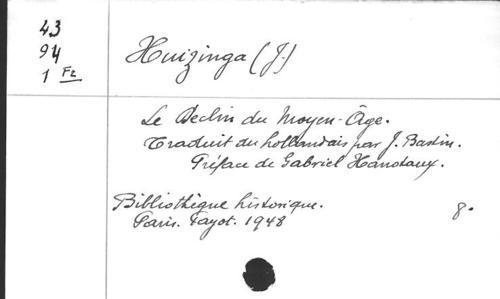 43
94
1 Fz
Huizinga (J.)
Le Declin du Moyen-Âge.
Traduit du hollandais par J. Bastin.
Préface de Gabriel Hanotaux.
Bibliothèque historique.
Paris. Payot. 1948
8º